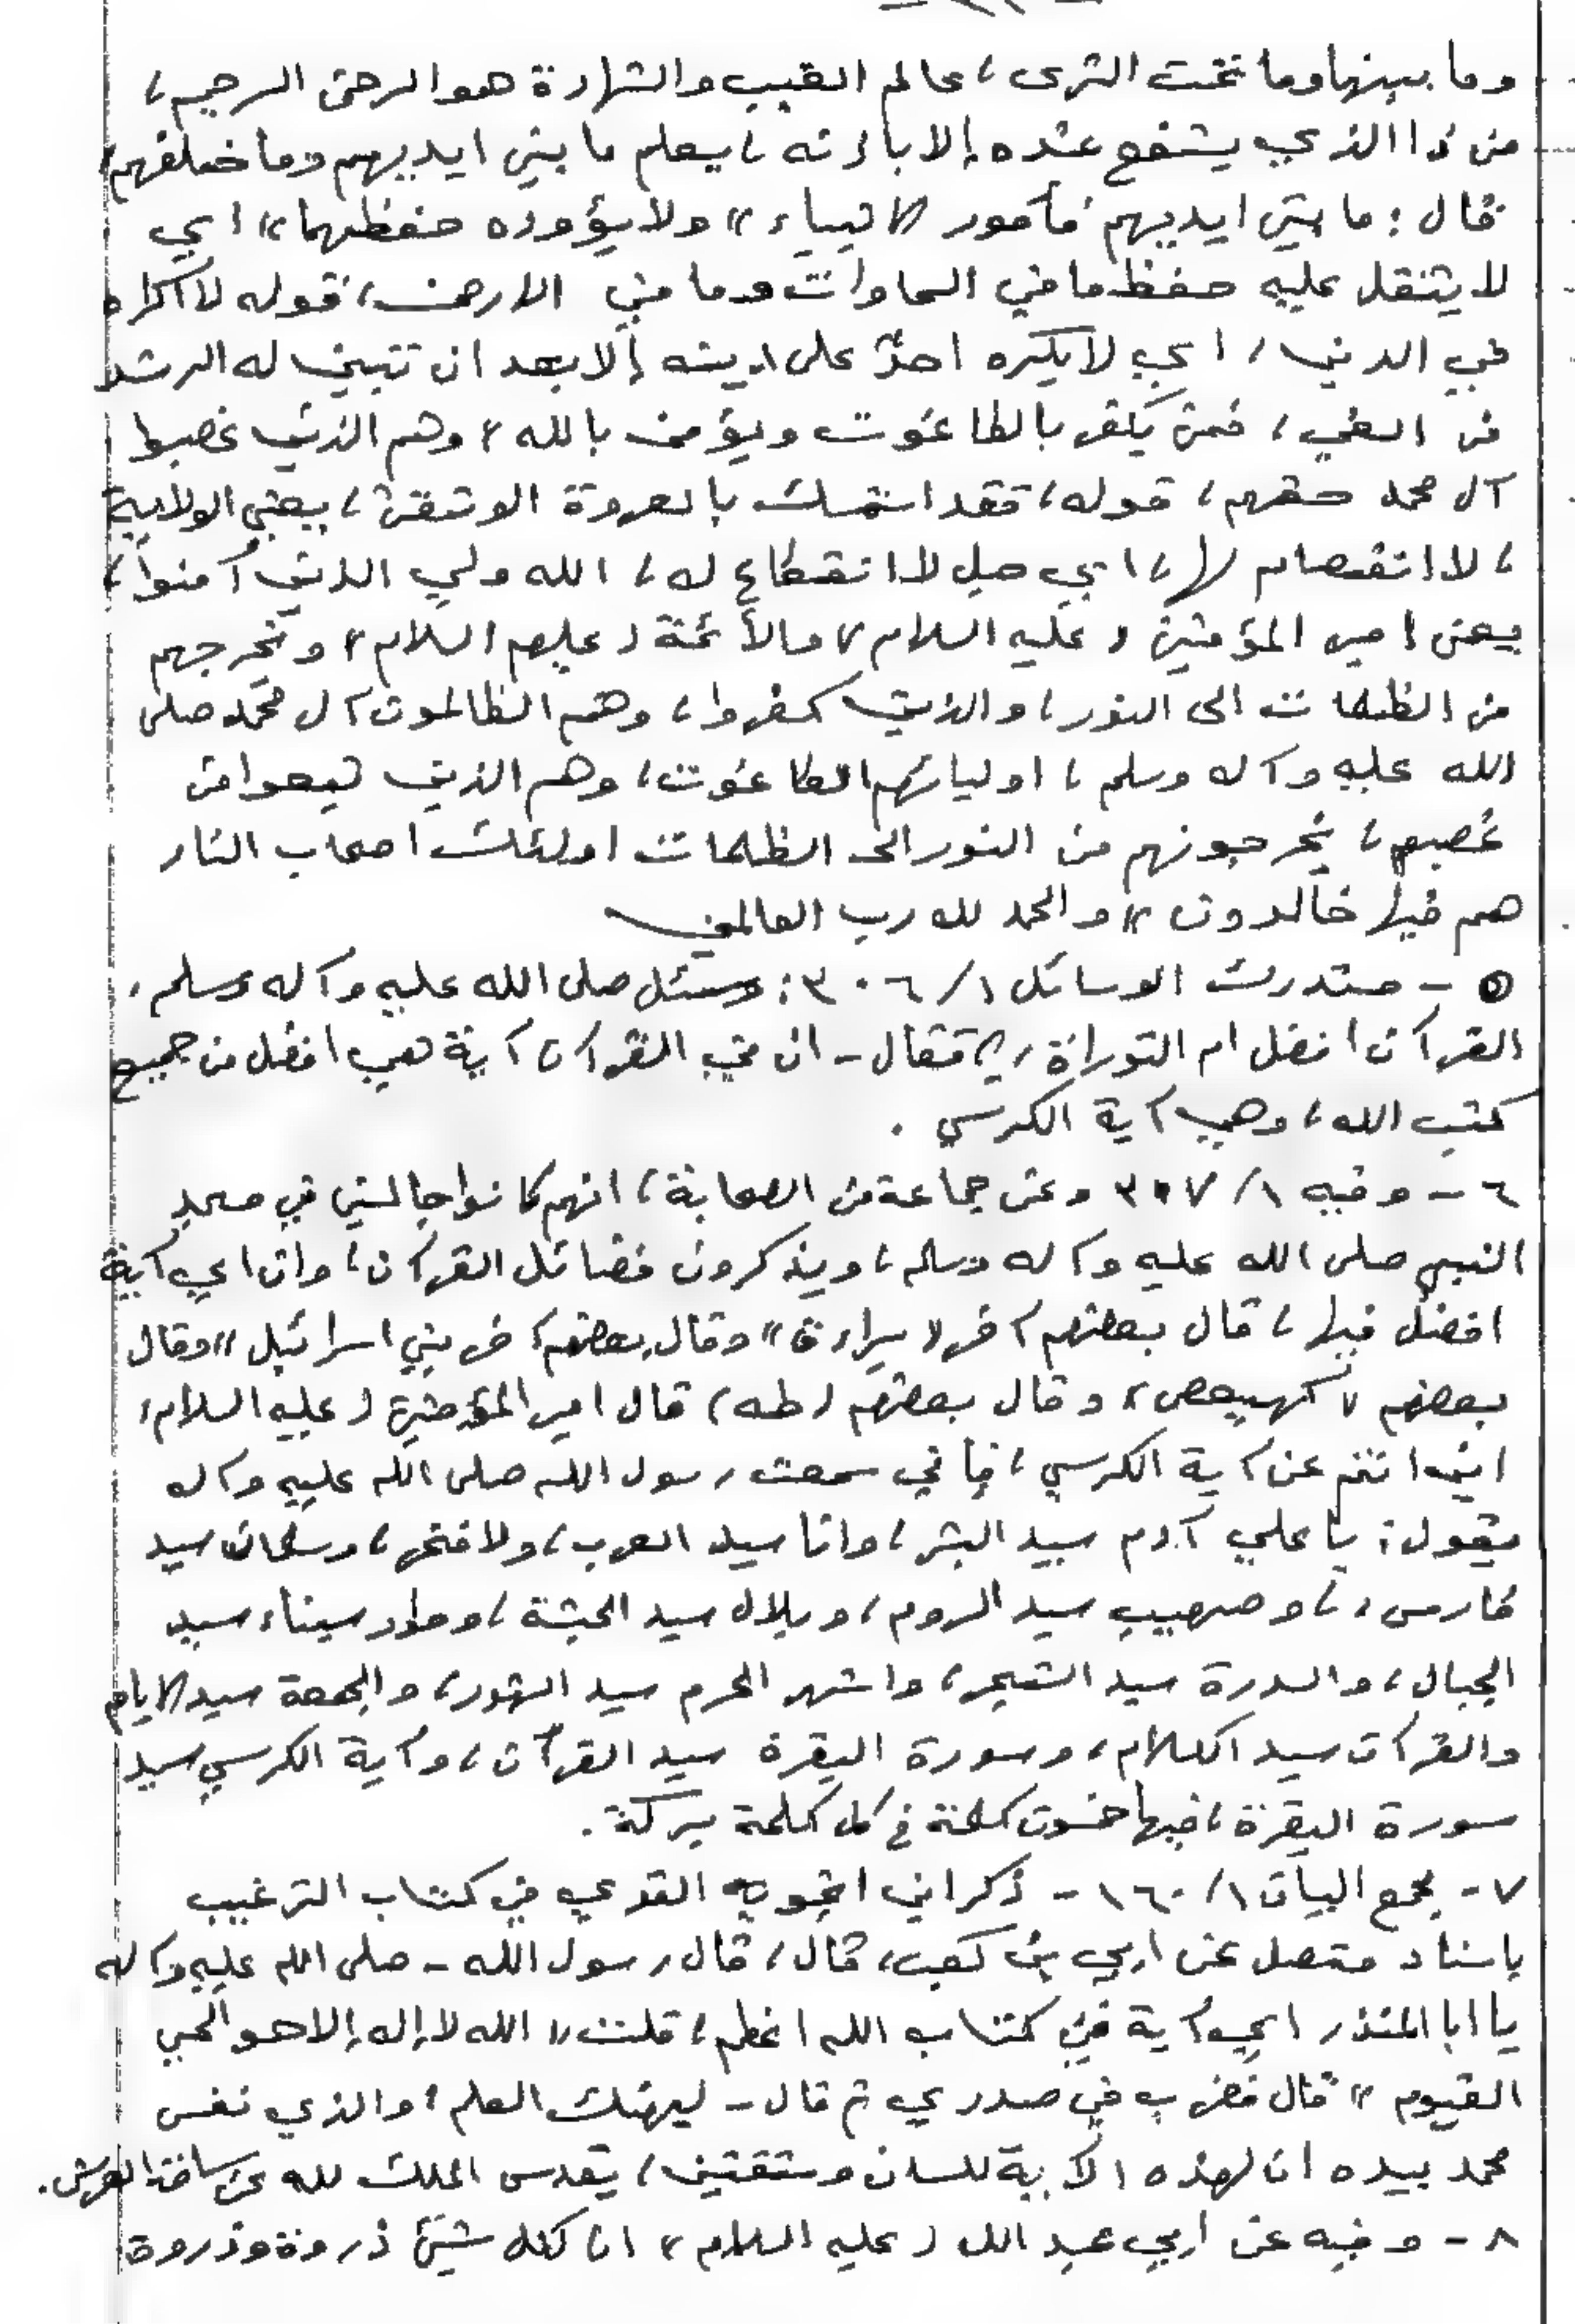 وما بينها وما تحت الثرى، عالم الغيب والشهادة هو الرحمن الرحيم،
من ذا الذي يشفع عنده إلا بإذنه، يعلم ما بين ايديهم وما خلفهم،
قال: ما بين ايديهم فأمور الانبياء "ولا يؤوده حفظهما" اي
لا يثقل عليه حفظ ما في السماوات وما في الارض، قوله لا اكراه
في الدين، اي لا يكره احدٌ على دينه إلا بعد ان تبين له الرشد
من الغي، فمن يكفر بالطاغوت ويؤمن بالله، وهم الذين غصبوا
آل محمد حقهم، قوله، فقد استمسك بالعروة الوثقى، يعني الولاية
، لا انفصام لها، اي حبل لا انقطاع له، الله ولي الذين آمنوا،
يعني امير المؤمنين (عليه السلام) والأئمة (عليهم السلام) ونخرجهم
من الظلمات الى النور، والذين كفروا، وهم الظالمون آل محمد صلى
الله عليه وآله وسلم، اوليائهم الطاغوت، وهم الذين تبعوا من
غصبهم، يخرجونهم من النور الى الظلمات اولئك اصحاب النار
هم فيها خالدون" والحمد لله رب العالمين
٥ - مستدرك الوسائل ١/٣٠٦: وسئل صلى الله عليه وآله وسلم،
القرآن افضل ام التوراة؟ فقال - ان في القرآن آية هي افضل من جميع
كتب الله، وهي آية الكرسي.
٦ - وفيه ١/٣٠٧ وعن جماعة من الصحابة، انهم كانوا جالسين في مسجد
النبي صلى الله عليه وآله وسلم، ويذكرون فضائل القرآن، وان اي آية
افضل فيها، قال بعضهم آخر "براءة" وقال بعضهم آخر بني اسرائيل "وقال
بعضهم "كهيعص" وقال بعضهم (طه) قال امير المؤمنين (عليه السلام)
اين انتم عن آية الكرسي، فإني سمعت رسول الله صلى الله عليه وآله
يقول: يا علي آدم سيد البشر، وانا سيد العرب، ولا فخر، وسلمان سيد
فارس، وصهيب سيد الروم، وبلال سيد الحبشة، وطور سيناء سيد
الجبال، والسدرة سيد الشجر، واشهر الحرم سيد الشهور، والجمعة سيد الايام
والقرآن سيد الكلام، وسورة البقرة سيد القرآن، وآية الكرسي سيد
سورة البقرة، فيها خمسون كلمة في كل كلمة بركة.
٧ - مجمع البيان ١/١٦٠ - ذكر القدعي في كتاب الترغيب
باسناد متصل عن ابي بن كعب، قال، قال رسول الله - صلى الله عليه وآله
يا ابا المنذر اي آية في كتاب الله اعظم، قلت "الله لا إله إلا هو الحي
القيوم" قال فضرب في صدري ثم قال - ليهنك العلم، والذي نفس
محمد بيده ان لهذه الآية للسان وشفتين، يقدس الملك لله عن ساق العرش.
٨ - وفيه عن ابي عبد الله (عليه السلام) ان لكل شيئ ذروة وذروة